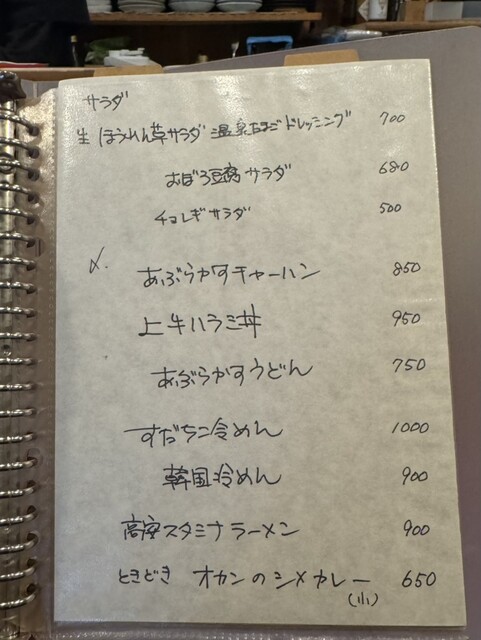 サラダ
生 ほうれん草サラダ 温泉たまごドレッシング 700
おぼろ豆腐サラダ 680
チョレギサラダ 500
〆.
あぶらかすチャーハン 850
上牛ハラミ丼 950
あぶらかすうどん 750
すだち冷めん 1000
韓国冷めん 900
高安スタミナラーメン 900
ときどき オカンのシメカレー 650
(小)